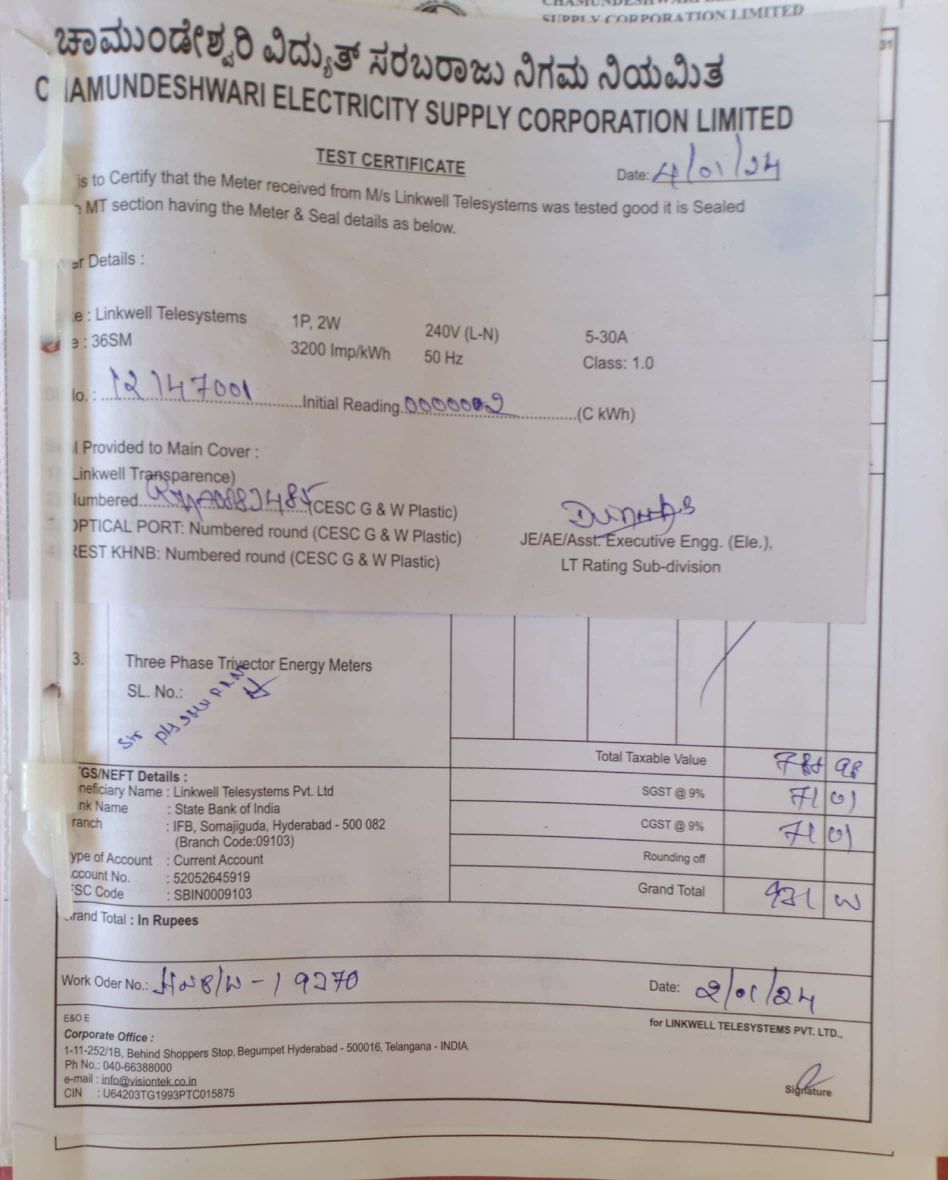 CHAMUNDESHWARI ELE
SUPPLY CORPORATION LIMITED
ಚಾಮುಂಡೇಶ್ವರಿ ವಿದ್ಯುತ್ ಸರಬರಾಜು ನಿಗಮ ನಿಯಮಿತ
CHAMUNDESHWARI ELECTRICITY SUPPLY CORPORATION LIMITED
TEST CERTIFICATE
Date: 4/01/24
is to Certify that the Meter received from M/s Linkwell Telesystems was tested good it is Sealed
MT section having the Meter & Seal details as below.
er Details :
e : Linkwell Telesystems 1P, 2W 240V (L-N) 5-30A
e : 36SM 3200 Imp/kWh 50 Hz Class: 1.0
Sl No. : 12147001 Initial Reading 0000002 (C kWh)
l Provided to Main Cover :
1) Linkwell Transparence)
2) Numbered (CESC G & W Plastic)
3) OPTICAL PORT: Numbered round (CESC G & W Plastic)
4) REST KHNB: Numbered round (CESC G & W Plastic)
JE/AE/Asst. Executive Engg. (Ele.),
LT Rating Sub-division
3. Three Phase Trivector Energy Meters
SL. No.:
Total Taxable Value 98
GS/NEFT Details :
neficiary Name : Linkwell Telesystems Pvt. Ltd SGST @ 9% 71 01
nk Name : State Bank of India
ranch : IFB, Somajiguda, Hyderabad - 500 082 CGST @ 9% 71 01
(Branch Code:09103)
ype of Account : Current Account Rounding off
ccount No. : 52052645919
FSC Code : SBIN0009103 Grand Total 931
Grand Total : In Rupees
Work Oder No.: 19270 Date: 2/01/24
E&O E
for LINKWELL TELESYSTEMS PVT. LTD.,
Corporate Office :
1-11-252/1B, Behind Shoppers Stop, Begumpet Hyderabad - 500016, Telangana - INDIA.
Ph No.: 040-66388000
e-mail : info@visiontek.co.in
CIN : U64203TG1993PTC015875
Signature